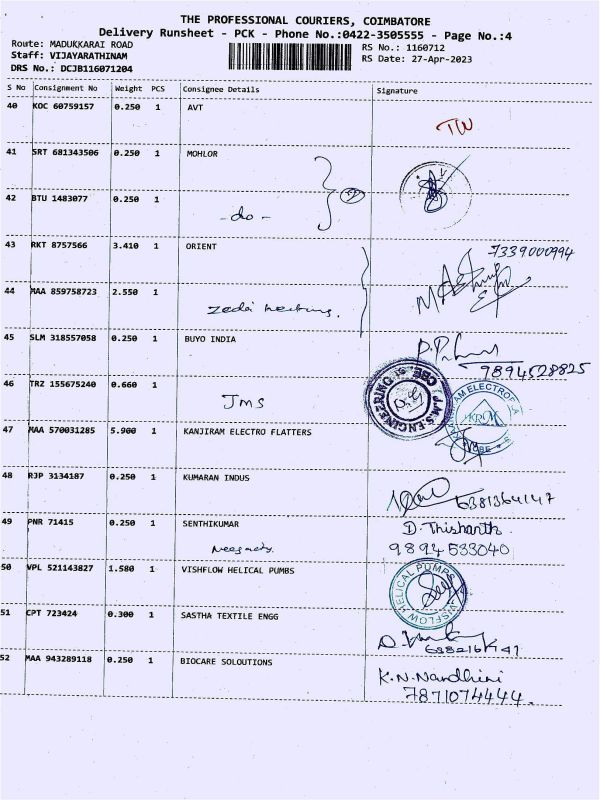 THE PROFESSIONAL COURIERS, COIMBATORE
Delivery Runsheet - PCK - Phone No.:0422-3505555 - Page No.:4
Route: MADUKKARAI ROAD
RS No.: 1160712
Staff: VIJAYARATHINAM
RS Date: 27-Apr-2023
DRS No.: DCJB116071204
S No Consignment No Weight PCS Consignee Details Signature
40 KOC 60759157 0.250 1 AVT
TW
41 SRT 681343506 0.250 1 MOHLOR
42 BTU 1483077 0.250 1
- do -
43 RKT 8757566 3.410 1 ORIENT
7339000994
44 MAA 859758723 2.550 1
45 SLM 318557058 0.250 1 BUYO INDIA
9894528825
46 TRZ 155675240 0.660 1
JMS
J.M.S. ENGINEERING CBE
47 MAA 570031285 5.900 1 KANJIRAM ELECTRO FLATTERS
KRM
48 RJP 3134187 0.250 1 KUMARAN INDUS
6381364147
49 PNR 71415 0.250 1 SENTHIKUMAR
D. Thishanth
9894533040
50 VPL 521143827 1.580 1 VISHFLOW HELICAL PUMBS
HELICAL PUMPS
51 CPT 723424 0.300 1 SASTHA TEXTILE ENGG
52 MAA 943289118 0.250 1 BIOCARE SOLOUTIONS
K.N.Nandhini
7871074444.